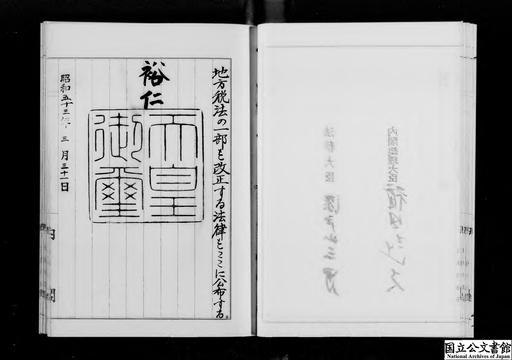 地方税法の一部を改正する法律をここに公布する。
裕仁
天皇御璽
昭和五十三年三月三十一日
内閣総理大臣 福田赳夫
法務大臣 瀬戸山三男
内閣
国立公文書館
National Archives of Japan